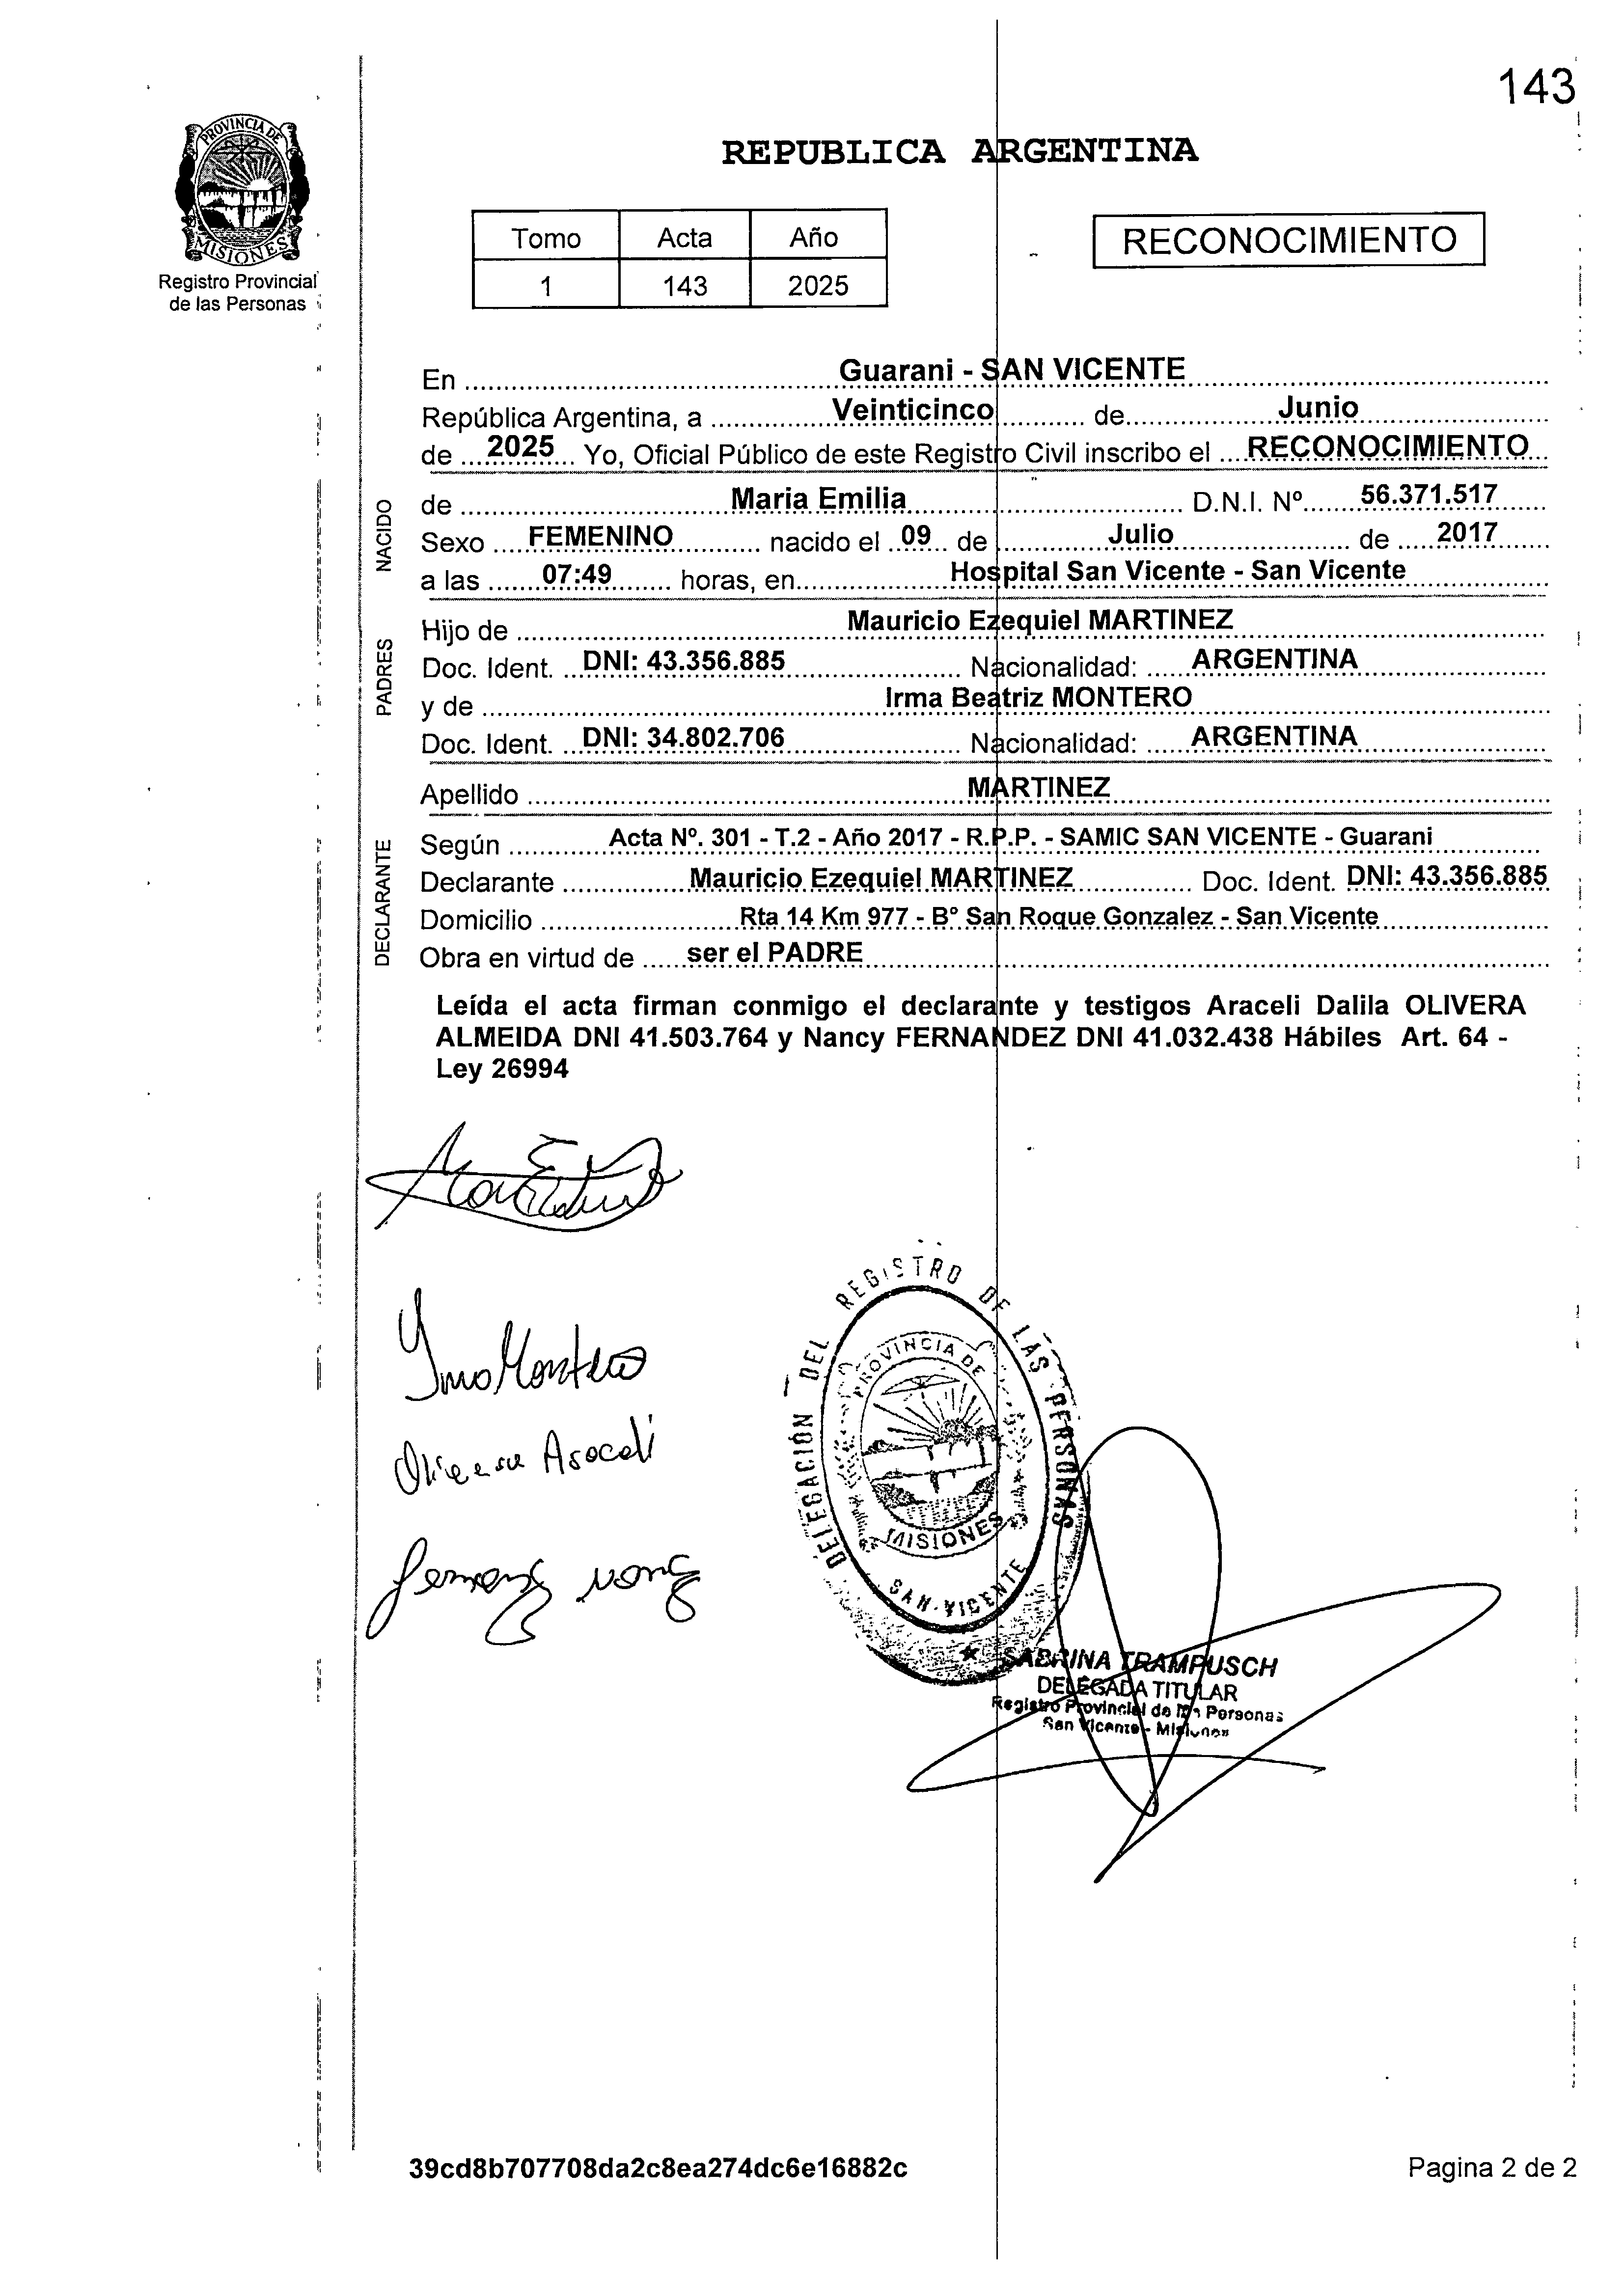 143
PROVINCIA DE
MISIONES
Registro Provincial
de las Personas
REPUBLICA ARGENTINA
Tomo Acta Año
1 143 2025
RECONOCIMIENTO
En Guarani - SAN VICENTE
República Argentina, a Veinticinco de Junio
de 2025 Yo, Oficial Público de este Registro Civil inscribo el RECONOCIMIENTO
NACIDO
de Maria Emilia D.N.I. Nº 56.371.517
Sexo FEMENINO nacido el 09 de Julio de 2017
a las 07:49 horas, en Hospital San Vicente - San Vicente
PADRES
Hijo de Mauricio Ezequiel MARTINEZ
Doc. Ident. DNI: 43.356.885 Nacionalidad: ARGENTINA
y de Irma Beatriz MONTERO
Doc. Ident. DNI: 34.802.706 Nacionalidad: ARGENTINA
Apellido MARTINEZ
DECLARANTE
Según Acta Nº. 301 - T.2 - Año 2017 - R.P.P. - SAMIC SAN VICENTE - Guarani
Declarante Mauricio Ezequiel MARTINEZ Doc. Ident. DNI: 43.356.885
Domicilio Rta 14 Km 977 - Bº San Roque Gonzalez - San Vicente
Obra en virtud de ser el PADRE
Leída el acta firman conmigo el declarante y testigos Araceli Dalila OLIVERA
ALMEIDA DNI 41.503.764 y Nancy FERNANDEZ DNI 41.032.438 Hábiles Art. 64 -
Ley 26994
DELEGACIÓN DEL REGISTRO DE LAS PERSONAS
PROVINCIA DE
MISIONES
SAN VICENTE
SABRINA TRAMPUSCH
DELEGADA TITULAR
Registro Provincial de las Personas
San Vicente - Misiones
39cd8b707708da2c8ea274dc6e16882c
Pagina 2 de 2